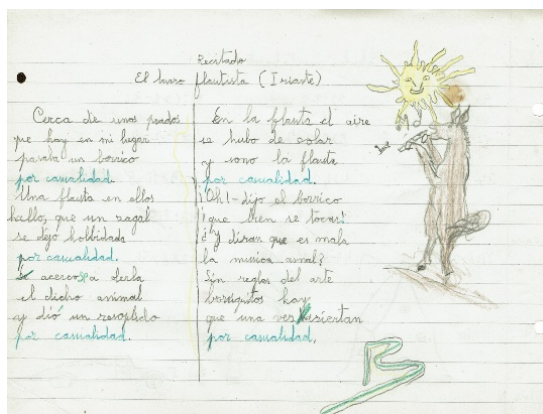 Recitado
El burro flautista (Iriarte)
Cerca de unos prados
que hay en mi lugar
pasaba un borrico
por casualidad.
Una flauta en ellos
hallo, que un zagal
se dejo holbidada
por casualidad.
Se acerco a olerla
el dicho animal
y dió un resoplido
por casualidad.
En la flauta el aire
se hubo de colar
y sono la flauta
por casualidad.
¡Oh!- dijo el borrico
¡que bien se tocar!
¿Y diran que es mala
la musica asnal?
Sin reglas del arte
borriquitos hay
que una vez asiertan
por casualidad.
B